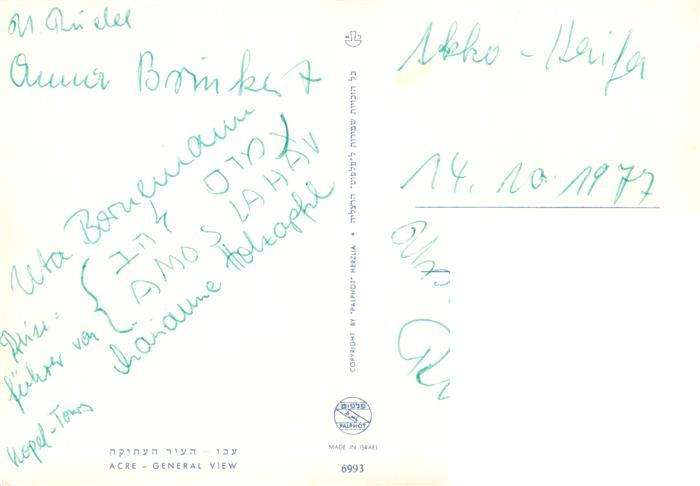 Anna Brinkert
Uta Bornemann
עמוס להב
AMOS LAHAV
Reise=
führer von
Kopel-Tours
Marianne Holzapfel
עכו - העיר העתיקה
ACRE – GENERAL VIEW
כל הזכויות שמורות ל"פלפוט" הרצליה • COPYRIGHT BY "PALPHOT" HERZLIA
פלפוט
PALPHOT
MADE IN ISRAEL
6993
Akko - Haifa
14. 10. 1977